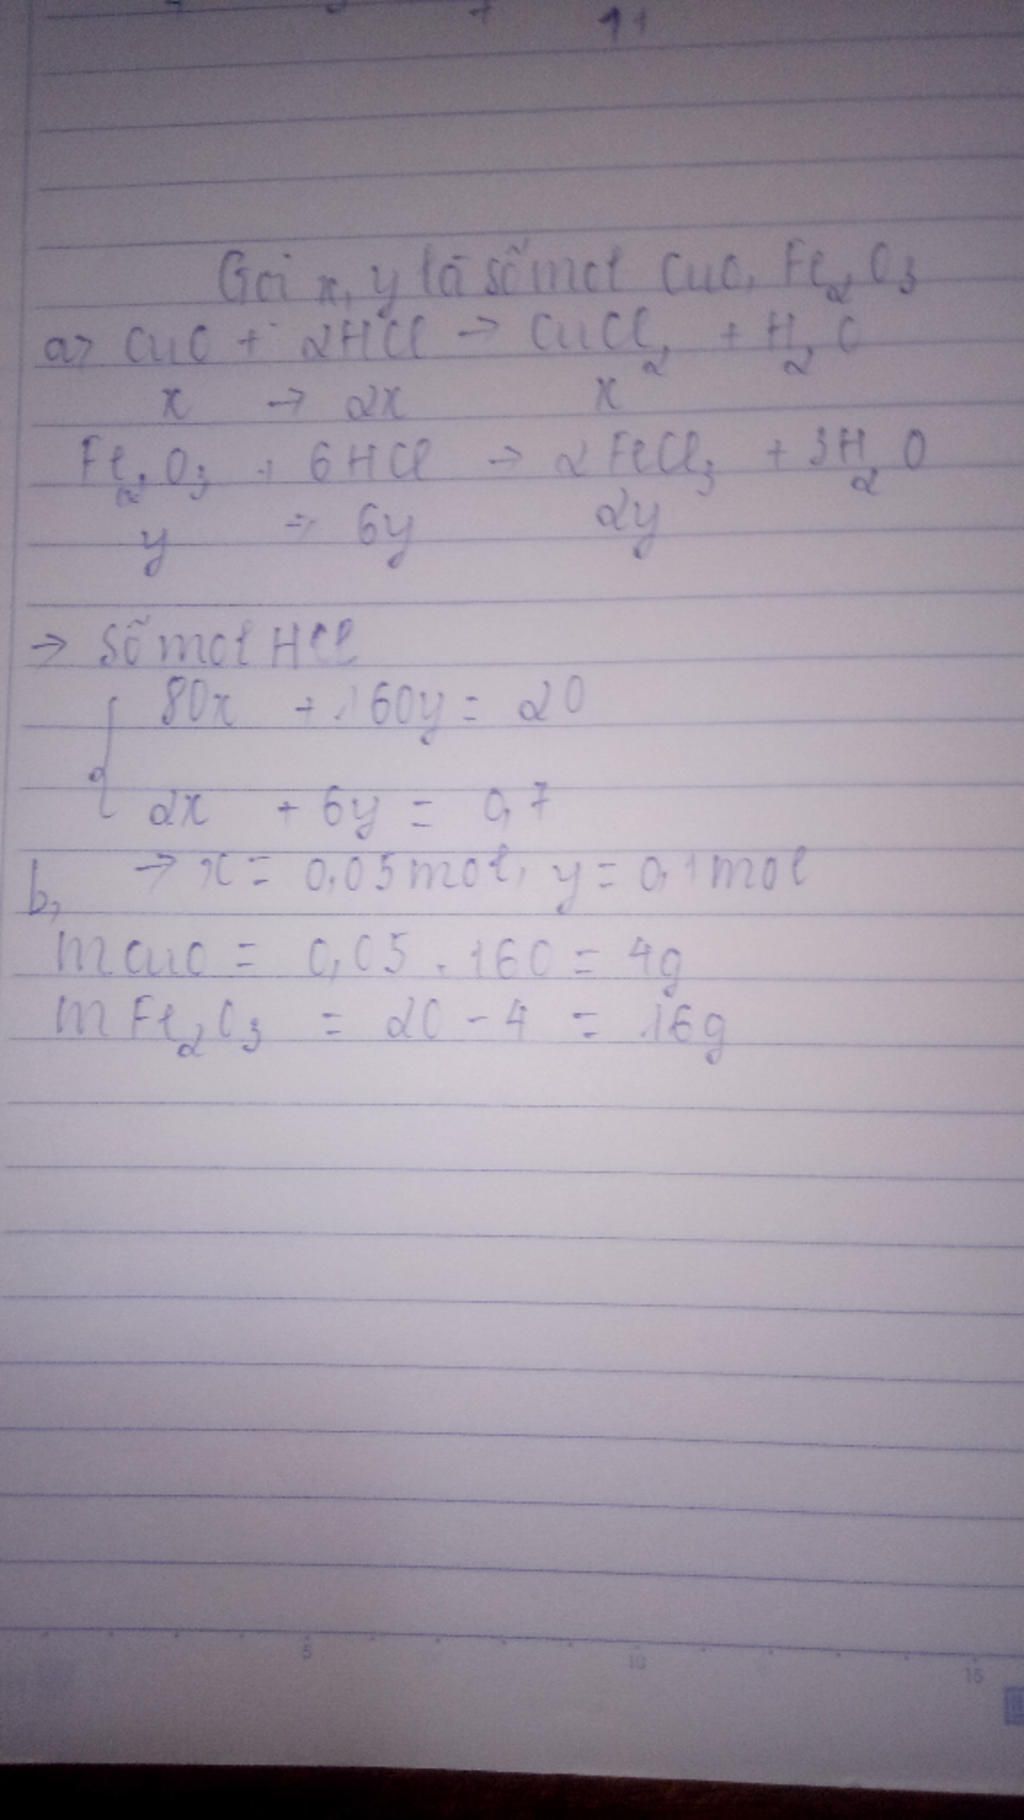 Gọi x, y là số mol CuO, Fe2O3
a> CuO + 2HCl → CuCl2 + H2O
x → 2x x
Fe2O3 + 6HCl → 2FeCl3 + 3H2O
y → 6y 2y
→ Số mol HCl
{ 80x + 160y = 20
2x + 6y = 0,7
→ x = 0,05 mol, y = 0,1 mol
b,
mCuO = 0,05 . 160 = 4g
mFe2O3 = 20 - 4 = 16g
5 10 15